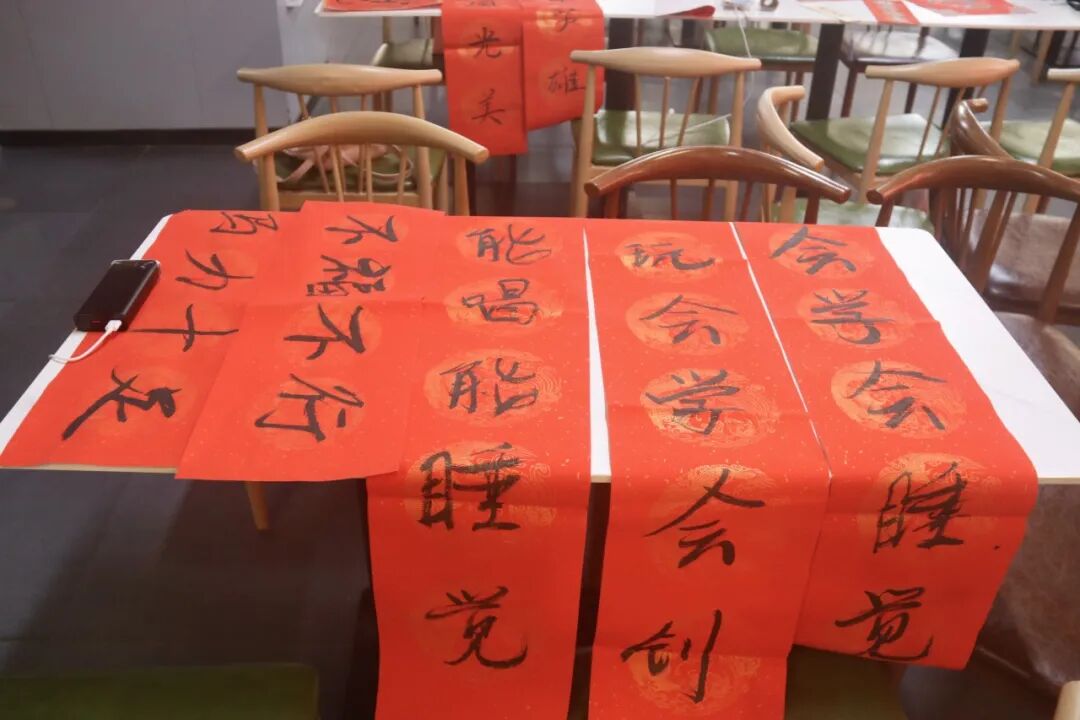 会学会睡觉
玩会学会创
能喝能睡觉
不不行
马力十足
雄
光美